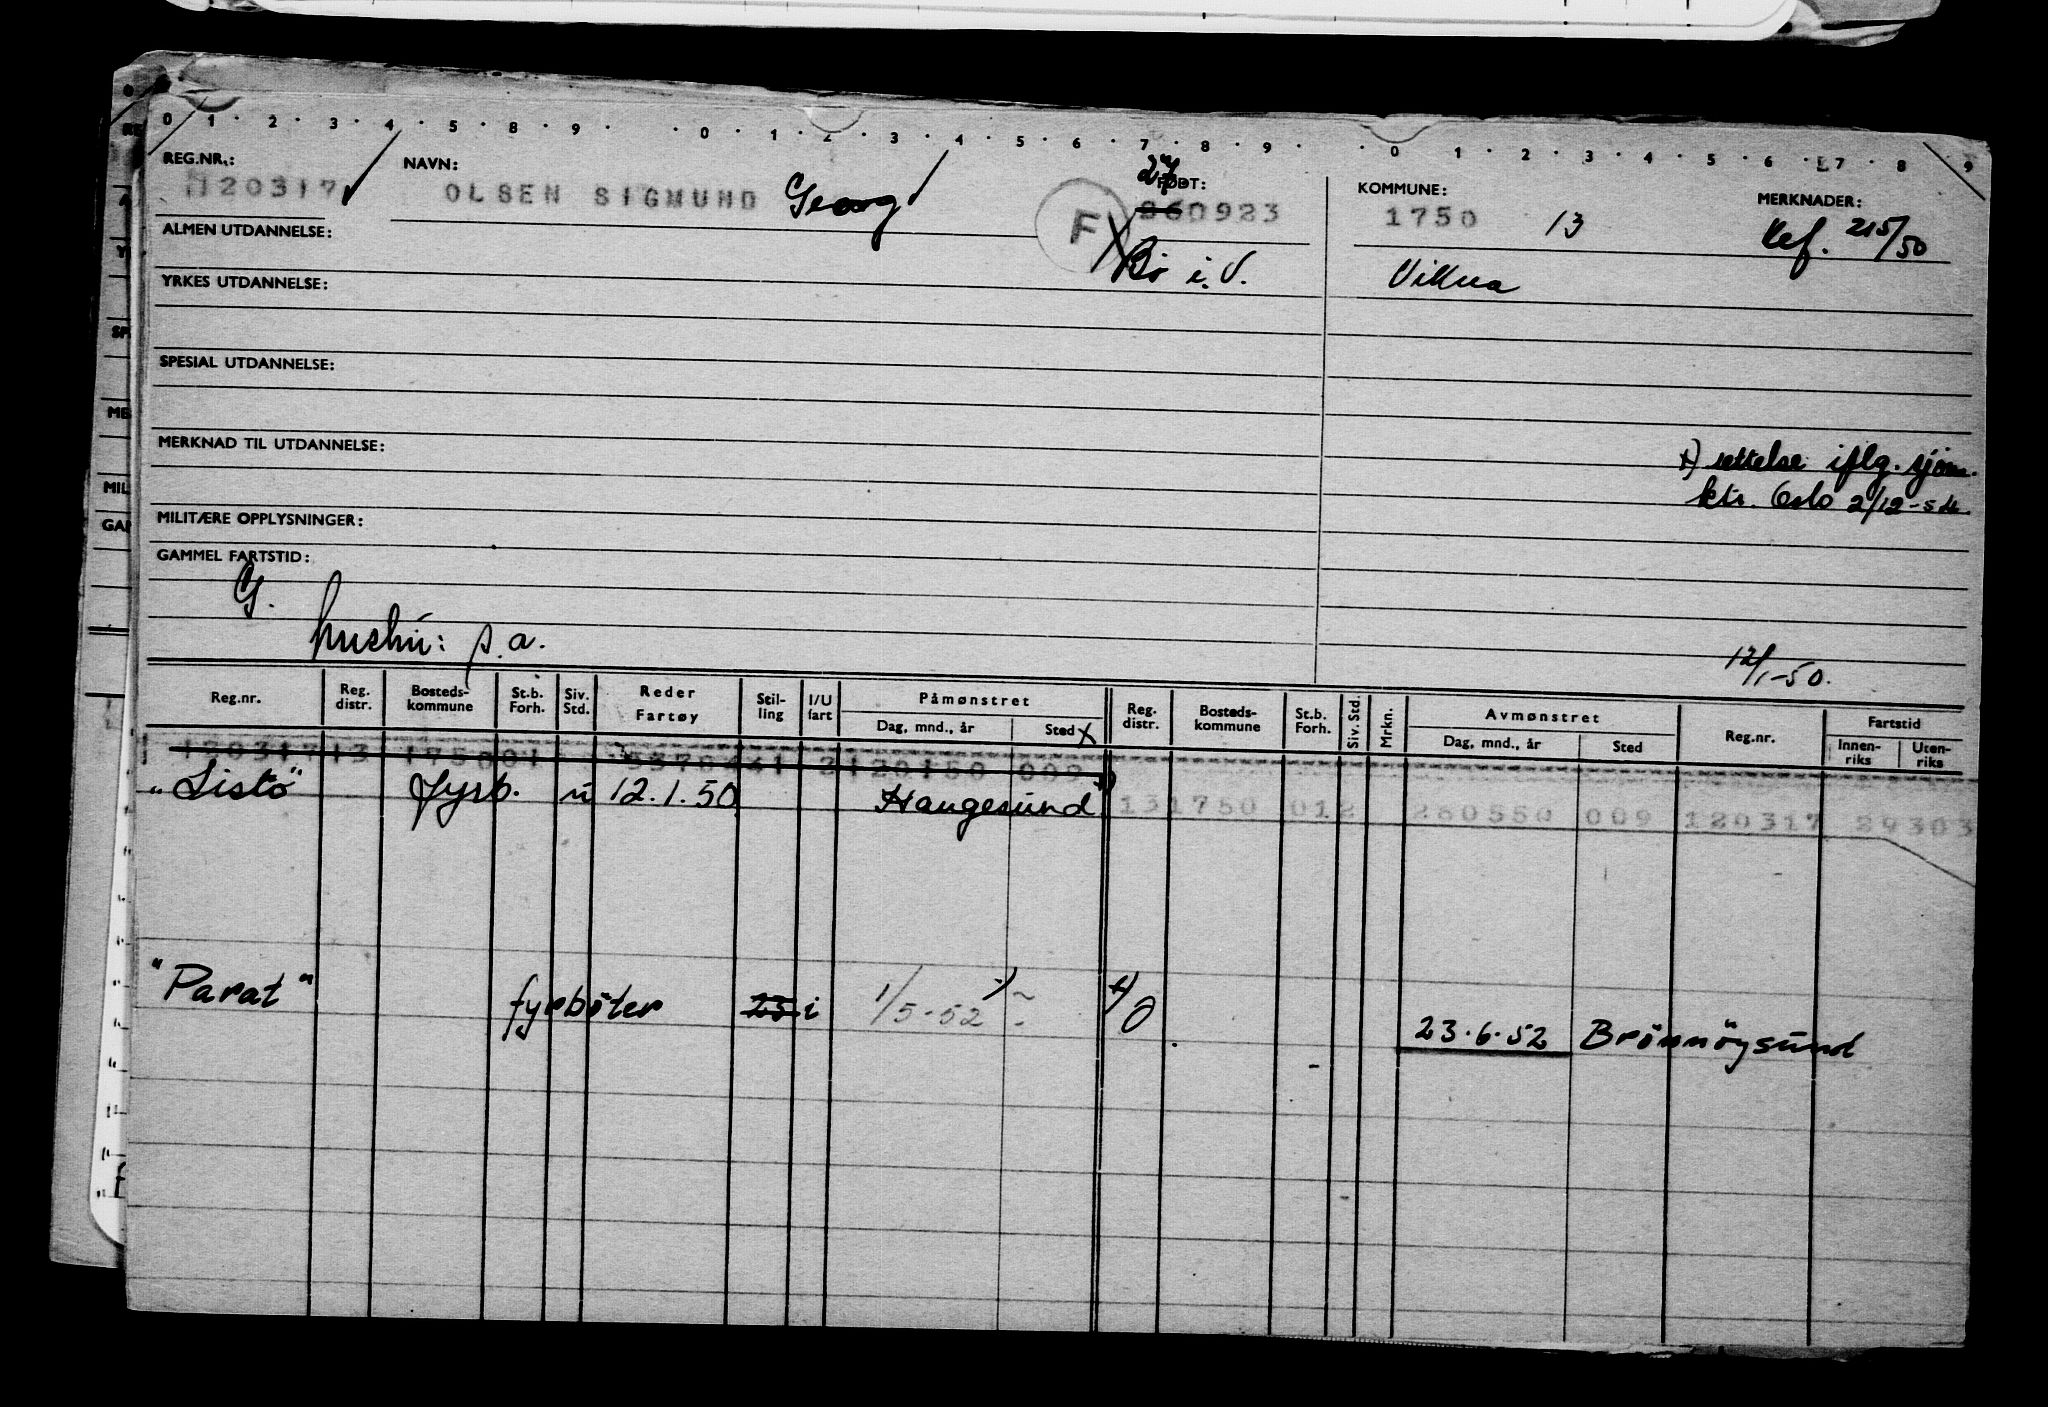 0 · 1 · 2 · 3 · 4 · 5 · 8 · 9 · · 0 · 1 · 2 · 3 · 4 · 5 · 6 · 7 · 8 · 9 · · 0 · 1 · 2 · 3 · 4 · 5 · 6 · 7 · 8 · 9
REG.NR.: NAVN: 27 FØDT: KOMMUNE: MERKNADER:
120317 OLSEN SIGMUND Georg F 260923 1750 13 Ref. 215/50
ALMEN UTDANNELSE: X Bö i. V. Vikna
YRKES UTDANNELSE:
SPESIAL UTDANNELSE:
MERKNAD TIL UTDANNELSE: x) rettelse iflg. sjöm.
ktr. Oslo 2/12-54.
MILITÆRE OPPLYSNINGER:
GAMMEL FARTSTID:
G.
hushu: s.a.
12/1-50.
Reg.nr. Reg. distr. Bosteds- kommune St.b. Forh. Siv. Std. Reder Fartøy Stil- ling I/U fart Påmønstret Dag, mnd., år Sted x Reg. distr. Bosteds- kommune St.b. Forh. Siv. Std. Mrkn. Avmønstret Dag, mnd., år Sted Reg.nr. Fartstid Innen- riks Uten- riks
120317 13 1750 01 2 120150 009
"Listö" fyrb. u 12.1.50 Haugesund 131750 012 260550 009 120317 29303
"Parat" fyrböter 25 i 1/5-52 x) 0 23.6.52 Brönnöysund